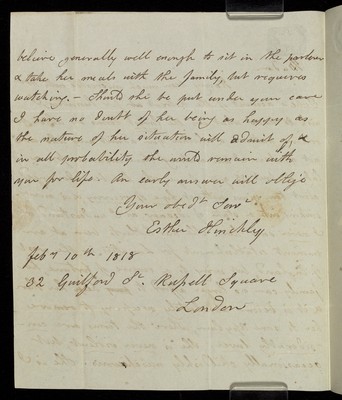 believe generally well enough to sit in the parlour
& take her meals with the family, but requires
watching. – Should she be put under your care
I have no doubt of her being as happy as
the nature of her situation will admit of, &
in all probability she would remain with
you for life. An early answer will oblige
Your obedt Servt.
Esther Hinchley
Feby 10th 1818
32 Guilford St. Russell Square
London